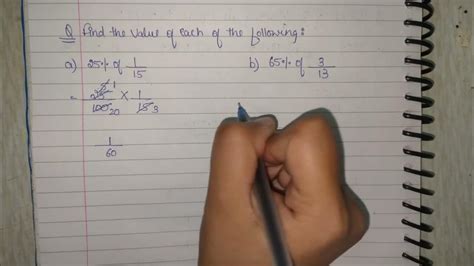 Q Find the value of each of the following:
a) 25% of 1/15 b) 65% of 3/13
= 25/100 × 1/15
1/60